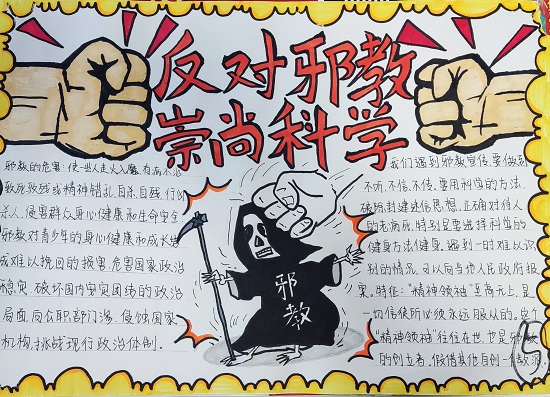 反对邪教
崇尚科学
邪教的危害:使一些人走火入魔,有病不治
致死致残或精神错乱,自杀,自残,行凶
杀人,侵害群众身心健康和生命安全
邪教对青少年的身心健康和成长造
成难以挽回的损害,危害国家政治
稳定,破坏国内安定团结的政治
局面,向公职部门渗,侵蚀国家
机构,挑战现行政治体制.
邪
教
我们遇到邪教宣传,要做到
不听,不信,不传,要用科学的方法,
破除封建迷信思想,正确对待人
的老病死,特别是要选择科学的
健身方法健身,遇到一时难以识
别的情况,可以向当地人民政府报
案.特征:"精神领袖"至高无上,是
一切信徒所必须永远服从的,这个
"精神领袖"往往在世,也是邪教
的创立者,假借其他自创一个教派